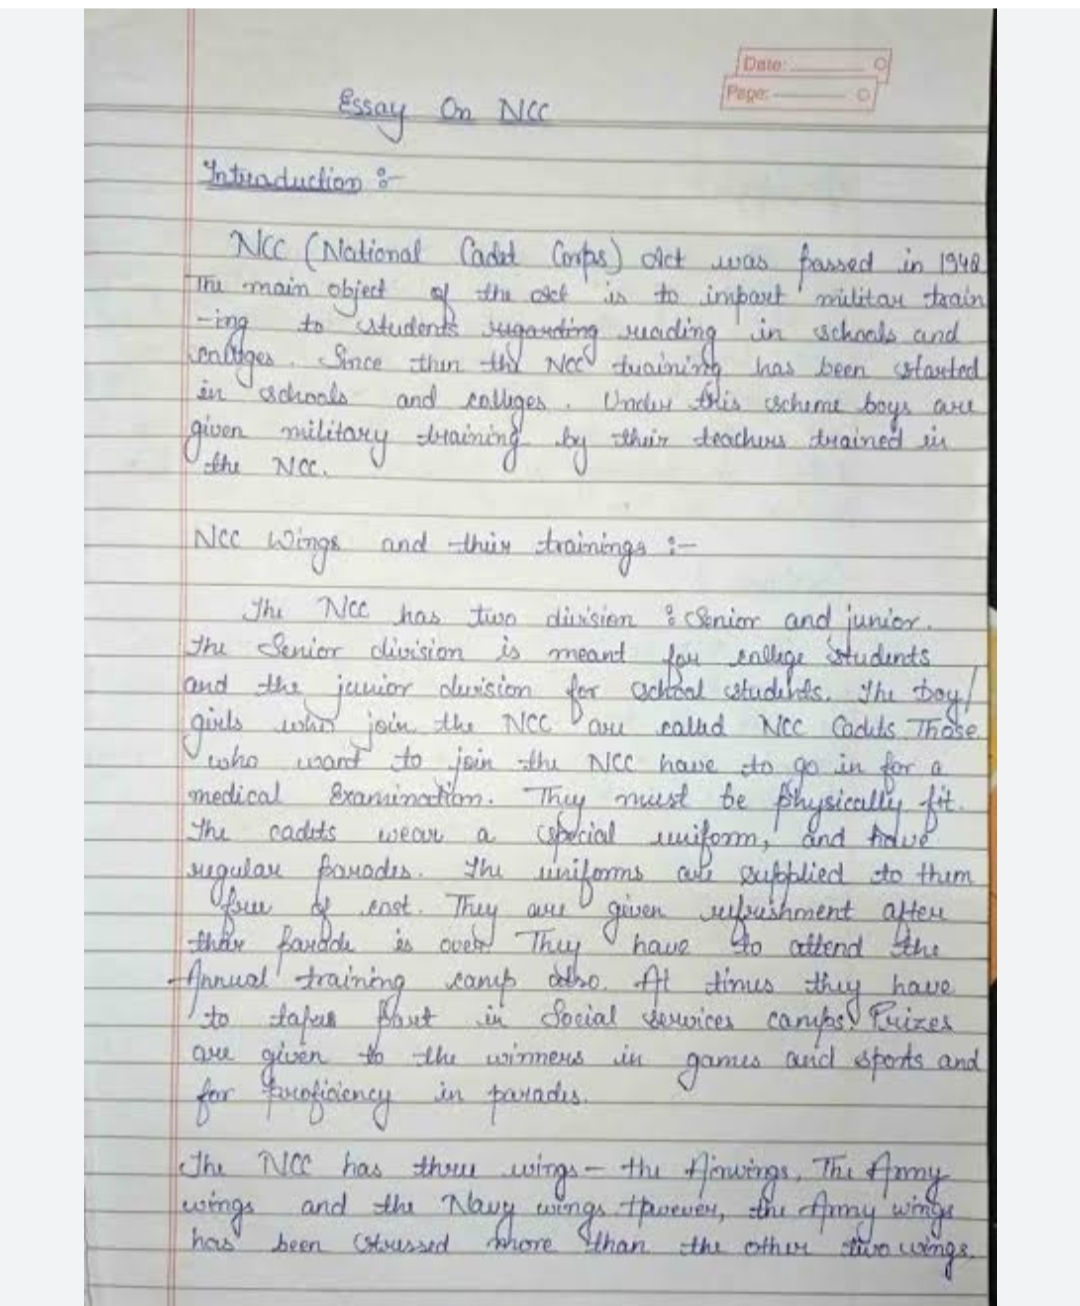 Date:
Page:
Essay On NCC
Intraduction :-
NCC (National Cadet Corps) Act was passed in 1948
The main object of the act is to impart militar train
-ing to students regarding reading in schools and
colleges. Since then the NCC training has been started
in schools and colleges. Under this scheme boys are
given military training by their teachers trained in
the NCC.
NCC Wings and their trainings :-
The NCC has two division : Senior and junior.
The Senior division is meant for college students
and the junior division for school students. The boy/
girls who join the NCC are called NCC Cadets Those
who want to join the NCC have to go in for a
medical Examination. They must be physically fit.
The cadets wear a special uniform, and have
regular parades. The uniforms are supplied to them
free of cost. They are given refreshment after
their parade is over. They have to attend the
Annual training camp also. At times they have
to part in Social services camps. Prizes
are given to the winners in games and sports and
for proficiency in parades.
The NCC has three wings - the Airwings, The Army
wings and the Navy wings. However, the Army wings
has been stressed more than the other two wings.